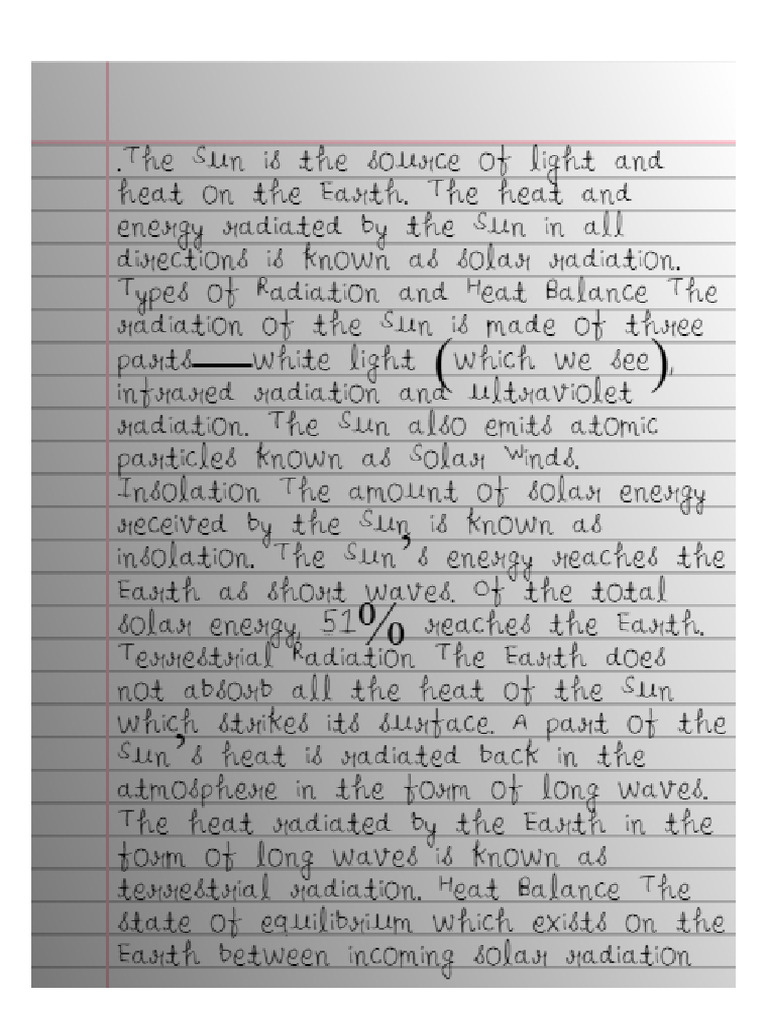 .The Sun is the source of light and
heat on the Earth. The heat and
energy radiated by the Sun in all
directions is known as solar radiation.
Types of Radiation and Heat Balance The
radiation of the Sun is made of three
parts—white light (which we see),
infrared radiation and ultraviolet
radiation. The Sun also emits atomic
particles known as Solar Winds.
Insolation The amount of solar energy
received by the Sun, is known as
insolation. The Sun's energy reaches the
Earth as short waves. Of the total
solar energy, 51% reaches the Earth.
Terrestrial Radiation The Earth does
not absorb all the heat of the Sun
which strikes its surface. A part of the
Sun's heat is radiated back in the
atmosphere in the form of long waves.
The heat radiated by the Earth in the
form of long waves is known as
terrestrial radiation. Heat Balance The
state of equilibrium which exists on the
Earth between incoming solar radiation